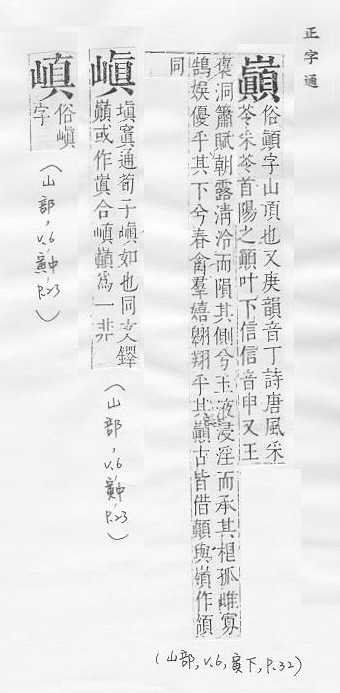 正字通
巔
俗顛字山頂也又庚韻音丁詩唐風采
苓采苓首陽之顛叶下信信音申又王
襃洞簫賦朝露淸泠而隕其側兮玉液浸淫而承其根孤雌寡
鵠娛優乎其下兮春禽羣嬉翺翔乎其巔古皆借顛與嶺作領
同
(山部,v.6,寅下,p.32)
嵮
塡寘通荀子嵮如也同文鐸
巔或作嵮合嵮巔爲一非
(山部,v.6,寅中,p.23)
嵮
俗嵮
字
(山部,v.6,寅中,p.23)